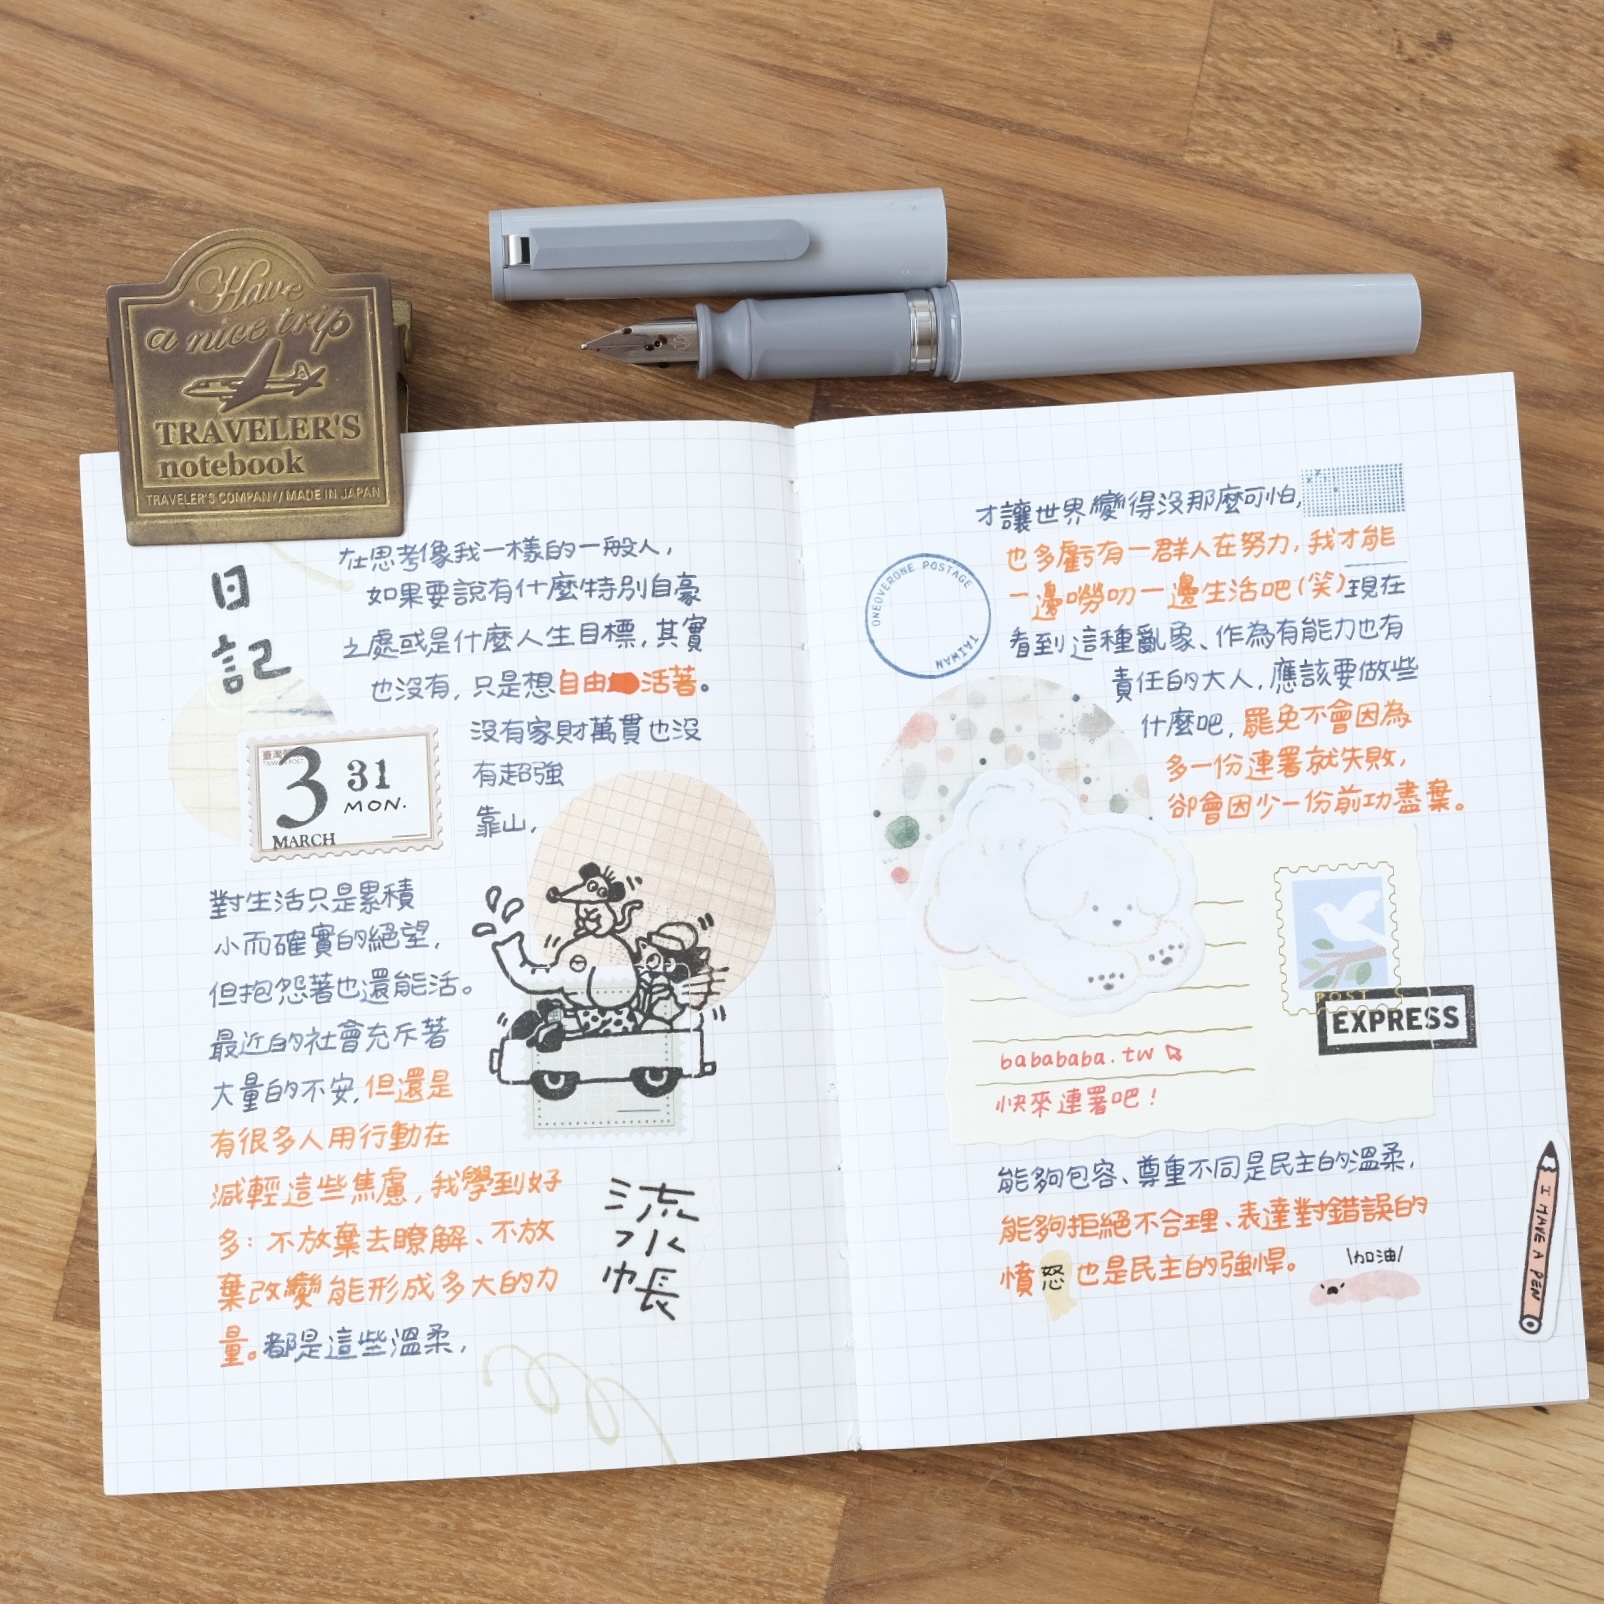 Have
a nice trip
TRAVELER'S
notebook
TRAVELER'S COMPANY / MADE IN JAPAN
日
記
在思考像我一樣的一般人，
如果要說有什麼特別自豪
之處或是什麼人生目標，其實
也沒有，只是想自由活著。
沒有家財萬貫也沒
有超強
靠山，
3 31
MON.
MARCH
TAIWAN POST
對生活只是累積
小而確實的絕望，
但抱怨著也還能活。
最近的社會充斥著
大量的不安，但還是
有很多人用行動在
減輕這些焦慮，我學到好
多：不放棄去瞭解、不放
棄改變能形成多大的力
量。都是這些溫柔，
流
水
帳
才讓世界變得沒那麼可怕，
也多虧有一群人在努力，我才能
一邊嘮叨一邊生活吧(笑)現在
看到這種亂象、作為有能力也有
責任的大人，應該要做些
什麼吧，罷免不會因為
多一份連署就失敗，
卻會因少一份前功盡棄。
ONEOVERONE POSTAGE
TAIWAN
POST
EXPRESS
babababa.tw
快來連署吧！
能夠包容、尊重不同是民主的溫柔，
能夠拒絕不合理、表達對錯誤的
憤怒也是民主的強悍。
\加油/
I HAVE A PEN